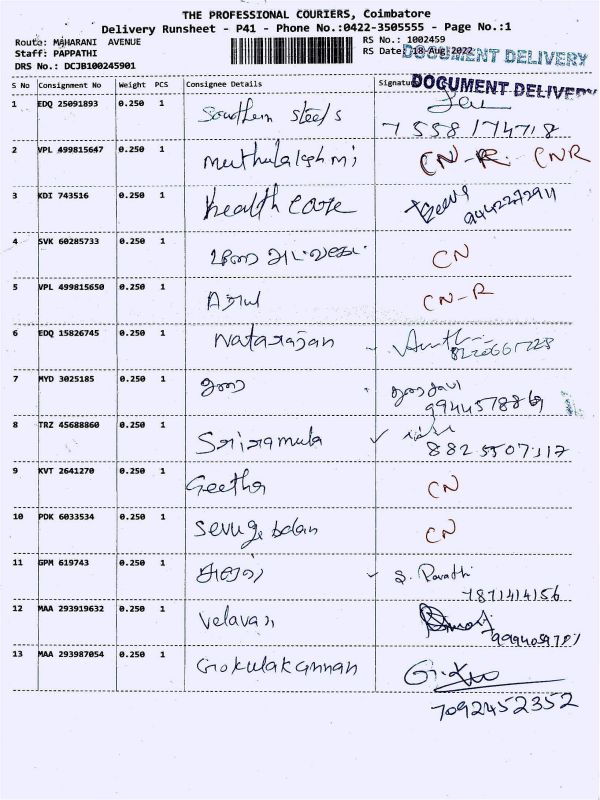 THE PROFESSIONAL COURIERS, Coimbatore
Delivery Runsheet - P41 - Phone No.:0422-3505555 - Page No.:1
Route: MAHARANI AVENUE RS No.: 1002459
Staff: PAPPATHI RS Date: 18-Aug-2022 DOCUMENT DELIVERY
DRS No.: DCJB100245901
S No Consignment No Weight PCS Consignee Details Signature DOCUMENT DELIVERY
1 EDQ 25091893 0.250 1 Southern steels
7558174718
2 VPL 499815647 0.250 1 Muthulakshmi CN-R CNR
3 KDI 743516 0.250 1 Health care 9442272911
4 SVK 60285733 0.250 1 CN
5 VPL 499815650 0.250 1 Arul CN-R
6 EDQ 15826745 0.250 1 Natarajan
7 MYD 3025185 0.250 1
9944578869
8 TRZ 45688860 0.250 1 Sriramula
8825507317
9 KVT 2641270 0.250 1 Geetha CN
10 PDK 6033534 0.250 1 CN
11 GPM 619743 0.250 1 S. Revathi
7871414156
12 MAA 293919632 0.250 1 Velavan
13 MAA 293987054 0.250 1 Gokulakannan
7092452352